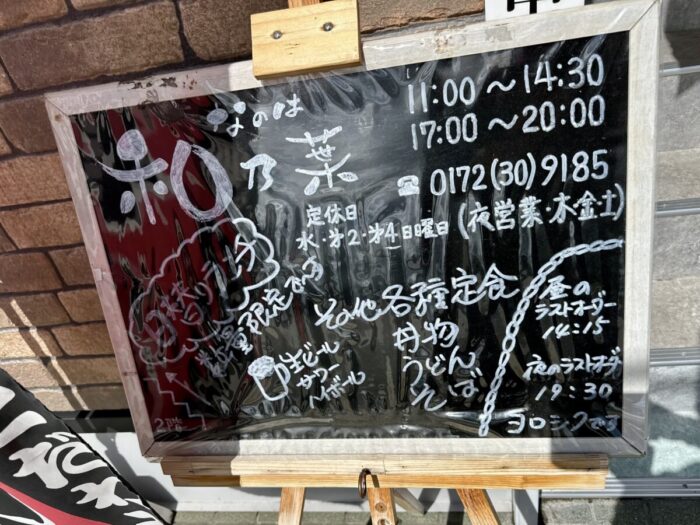 なのは
和乃葉
11:00～14:30
17:00～20:00
☎ 0172(30)9185
(夜営業・木・金・土)
定休日
水・第2・第4日曜日
日替りランチ
数量限定です
その他各種定食
丼物
うどん
そば
生ビール
サワー
ハイボール
2階
昼の
ラストオーダー
14:15
夜のラストオーダー
19:30
ヨロシクです